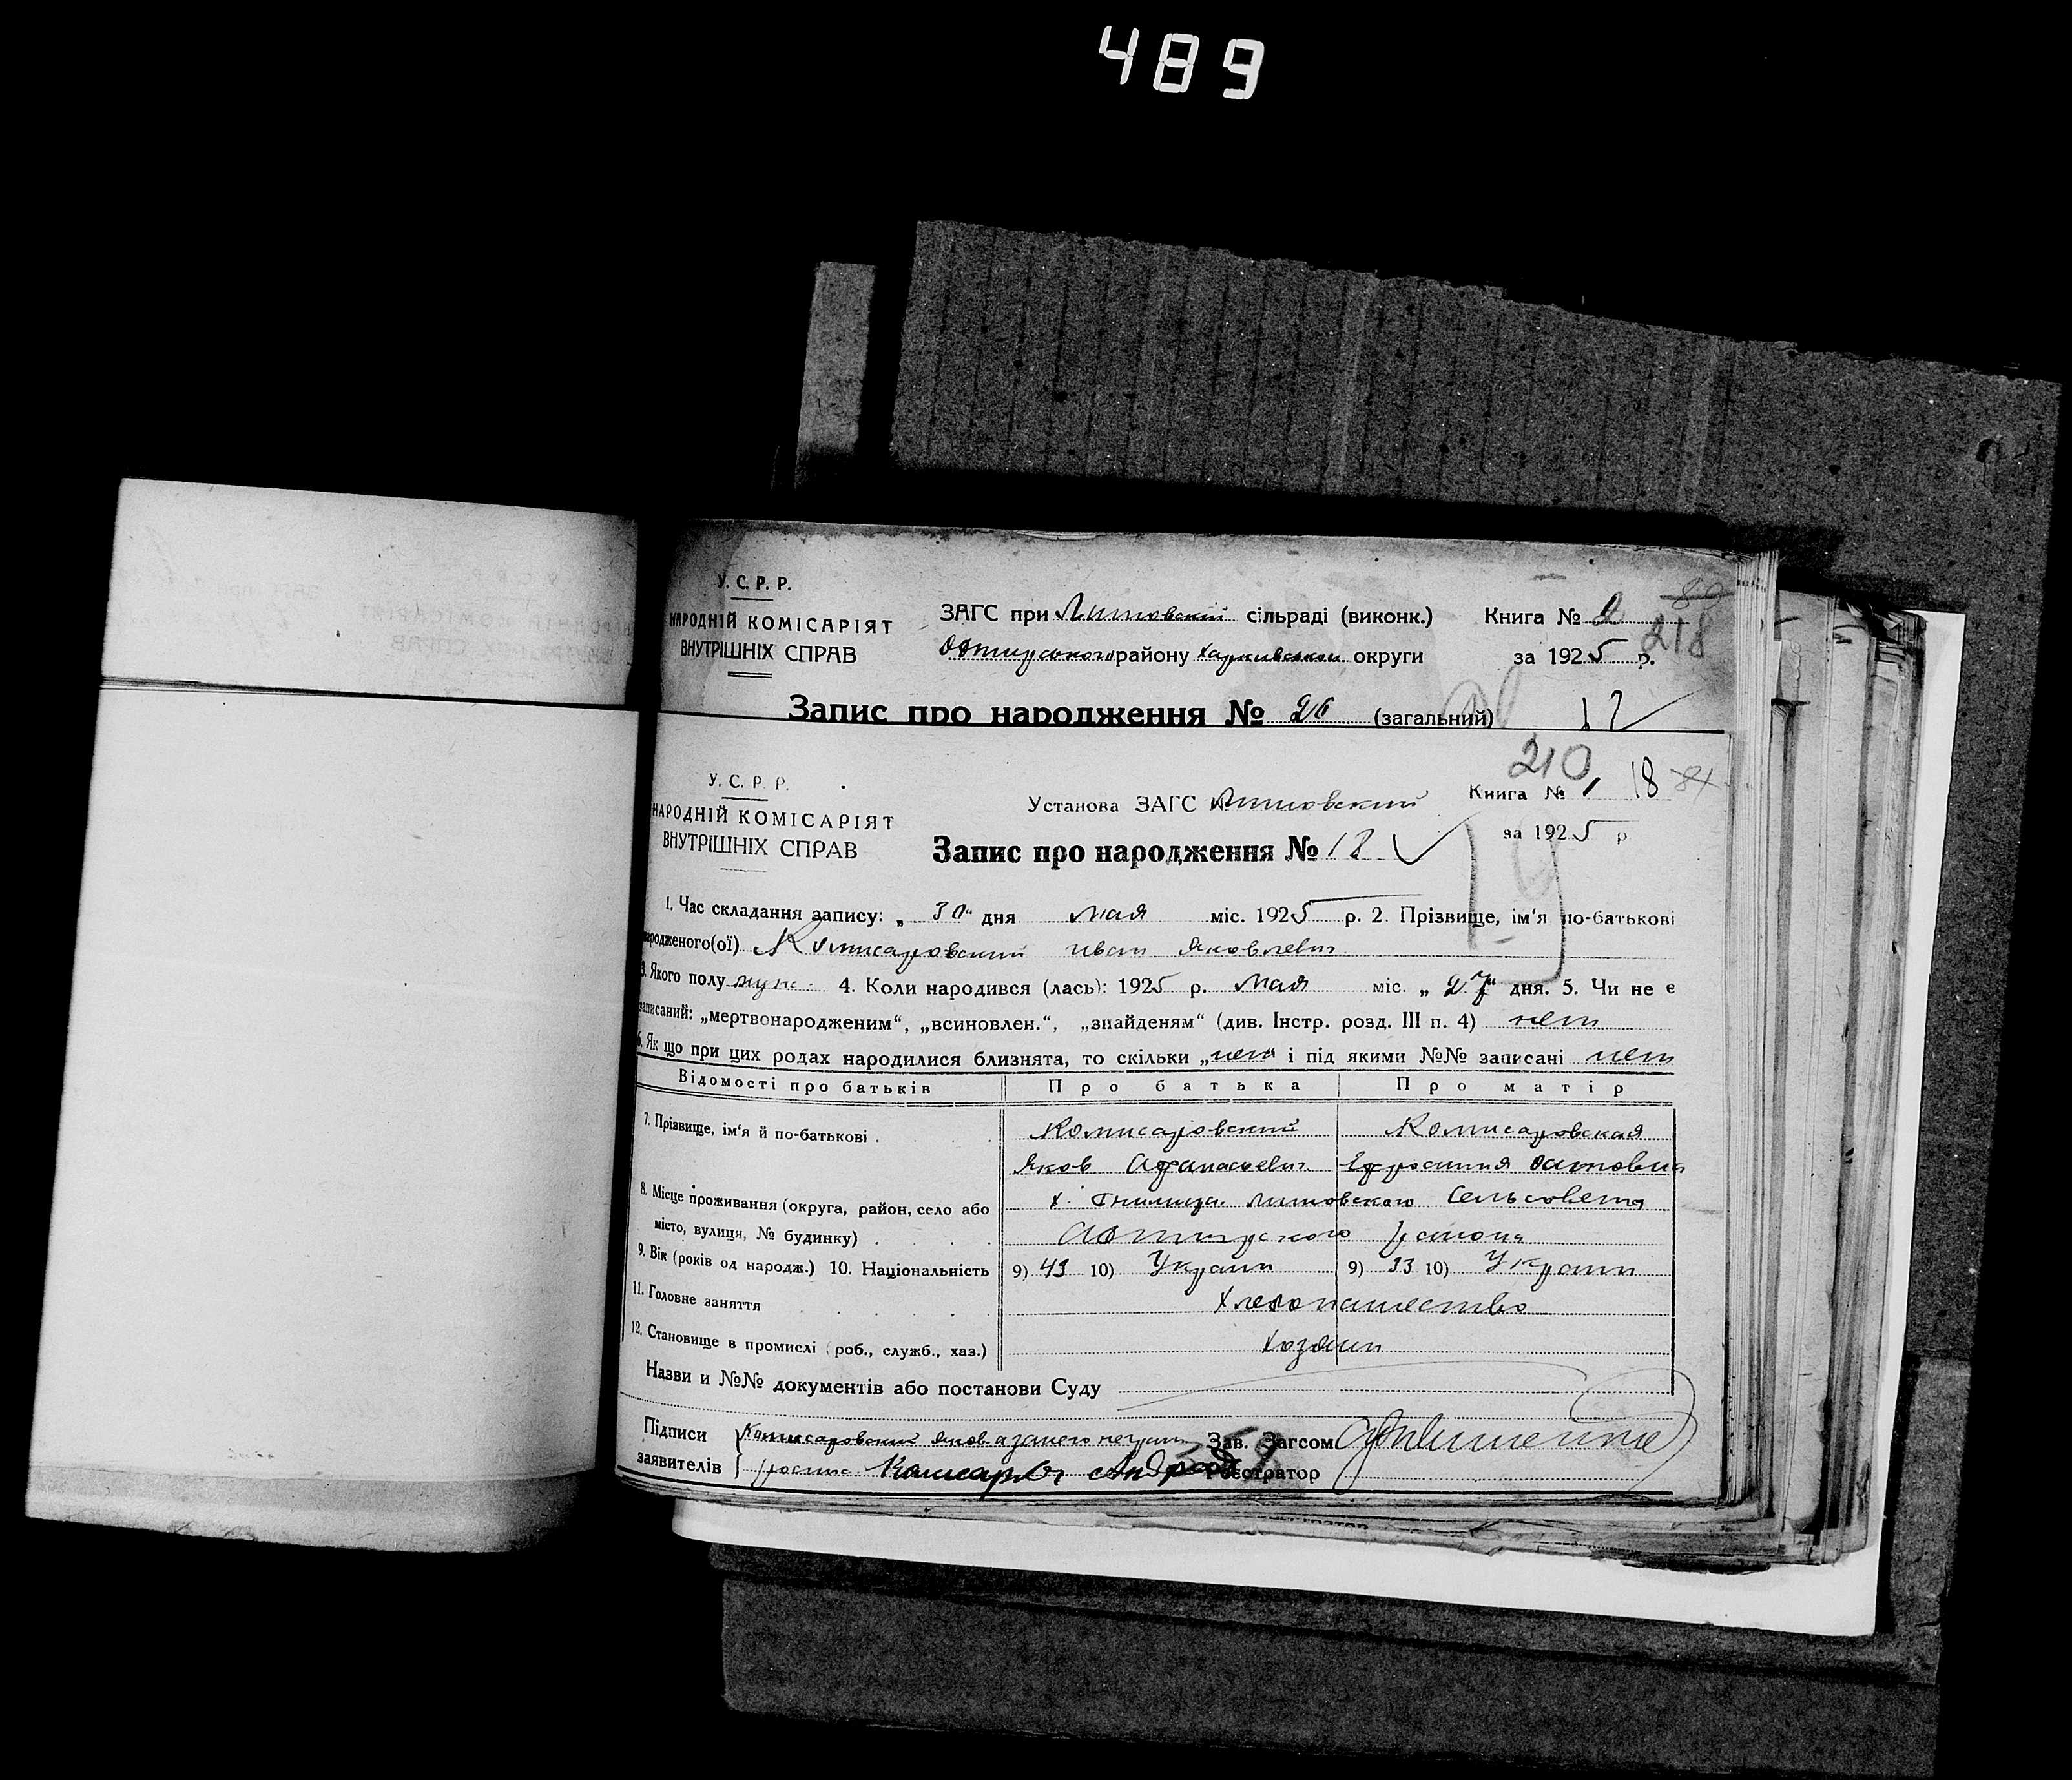 489
У. С. Р. Р.
НАРОДНІЙ КОМІСАРІЯТ
ВНУТРІШНІХ СПРАВ
ЗАГС при Литовский сільраді (виконк.)
Охтирського району Харкивской округи
Книга № 2
за 1925 р.
80
218
Запис про народження № 26 (загальний) 12
У. С. Р. Р.
НАРОДНІЙ КОМІСАРІЯТ
ВНУТРІШНІХ СПРАВ
Установа ЗАГС Литовский
210
Книга № 1 18 81
за 1925 р
Запис про народження № 12
1. Час складання запису: „ 30 “ дня мая міс. 1925 р. 2. Прізвище, ім‘я по-батькові
народженого(ої) Комисаровский иван Яковлевич
3. Якого полу муж. 4. Коли народився (лась): 1925 р. мая міс. „ 27 “ дня. 5. Чи не є
записаний: „мертвонародженим“, „всиновлен.“, „знайденям“ (див. Інстр. розд. III п. 4) нет
6. Як що при цих родах народилися близнята, то скільки „нет“ і під якими №№ записані нет
Відомості про батьків Про батька Про матір
7. Прізвище, ім‘я й по-батькові . Комисаровский Комисаровская
Яков Афанасиевич Ефросиния
8. Місце проживання (округа, район, село або х. Гнилица Литовского Сельсовета
місто, вулиця, № будинку) Ахтирского района
9. Вік (років од народж.) 10. Національність 9) 43 10) Украин 9) 33 10) Украин
11. Головне заняття Хлебопашество
12. Становище в промислі (роб., служб., хаз.) хозяин
Назви и №№ документів або постанови Суду
Підписи Комиссаровский Яков а за него неграм
заявителів роспис. Комисаров Андрей
Зав. Загсом
Реєстратор